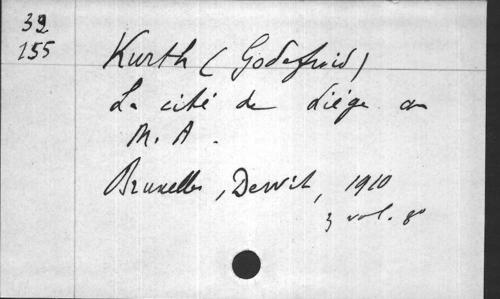 39
155
Kurth (Godefroid)
La cité de Liége au
M. A.
Bruxelles, Dewit, 1910
3 vol. 8°